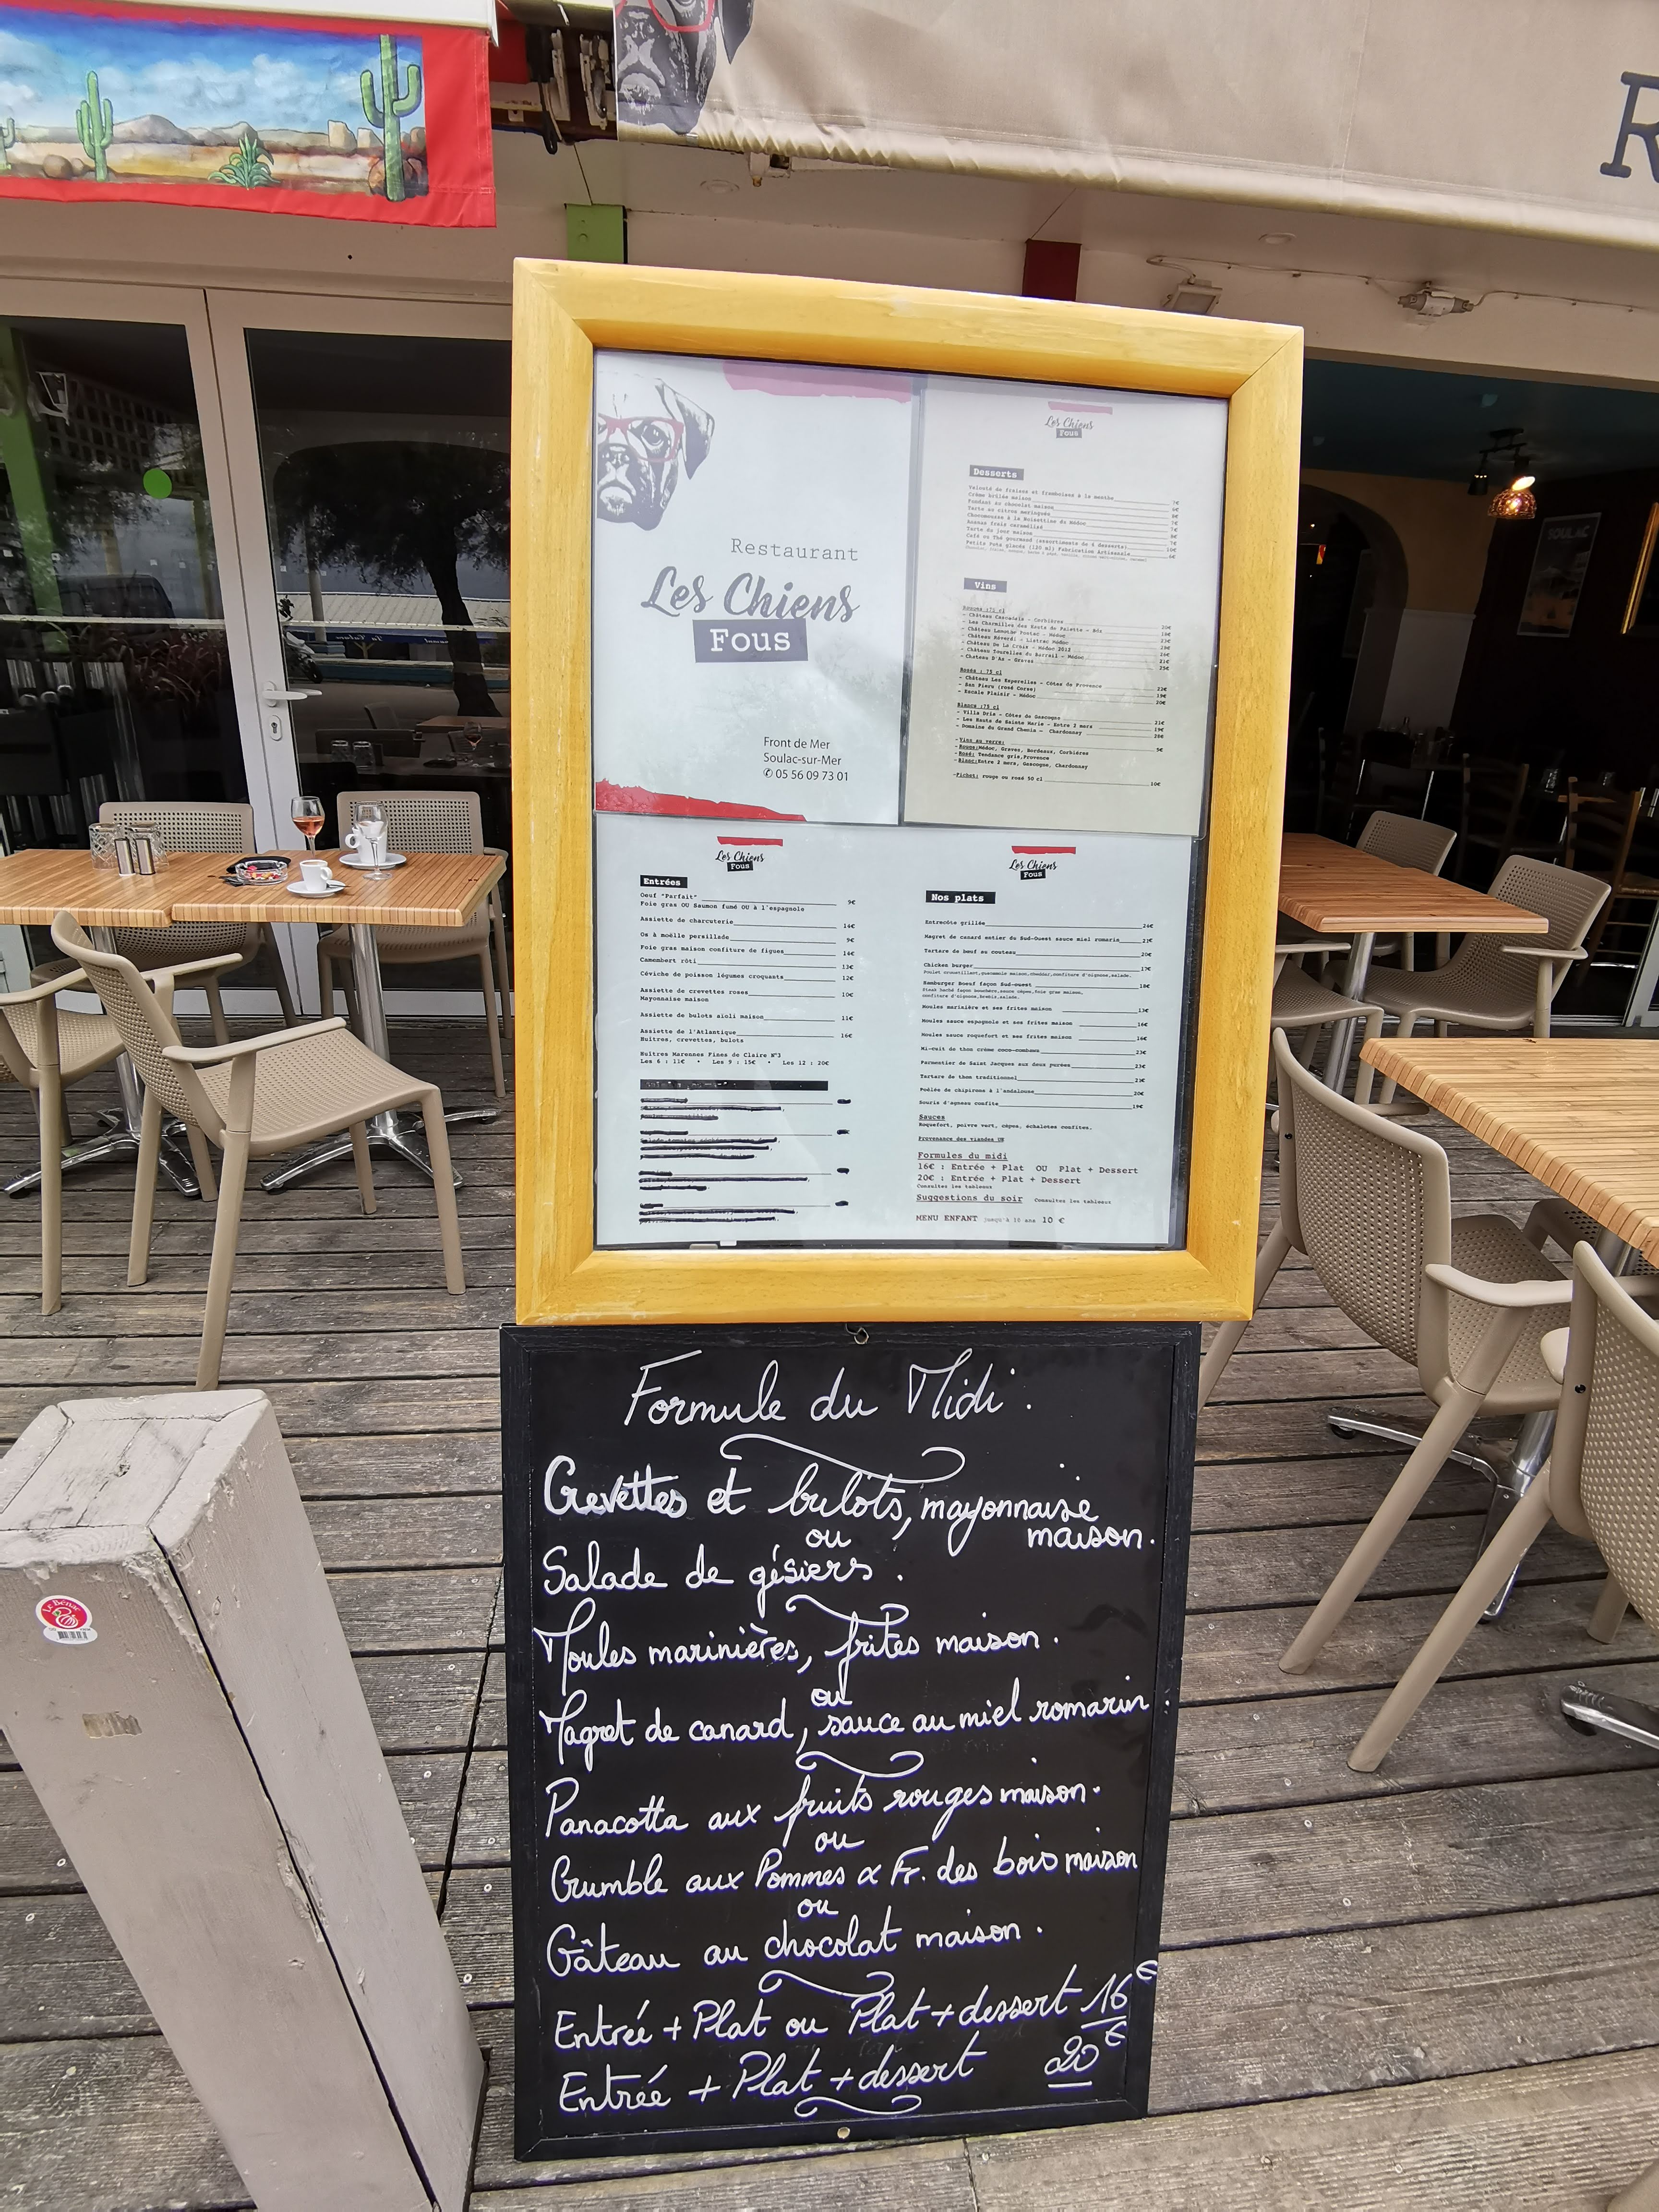 R
SOULAC
Restaurant
Les Chiens
Fous
Front de Mer
Soulac-sur-Mer
✆ 05 56 09 73 01
Les Chiens
Fous
Desserts
Velouté de fraises et framboises à la menthe 7€
Crème brûlée maison
Fondant au chocolat maison
Tarte au citron meringuée
Tarte du jour maison
Café ou Thé gourmand (assortiments de 6 desserts) 10€
Petits Pots glacés (120 ml) Fabrication Artisanale
Vins
Rouges :75 cl
- Château Cascadais - Corbières 20€
- Les Charmilles des Hauts de Palette - Bdx
- Château Lamothe Pontac - Médoc
- Château Réverdi - Listrac Médoc
- Château De La Croix - Médoc 2012
- Château Tourelles du Barrail - Médoc
- Chateau D'As - Graves 25€
Rosés : 75 cl
- Château Les Esperelles - Côtes de Provence 22€
- San Pieru (rosé Corse) 19€
- Escale Plaisir - Médoc 20€
Blancs :75 cl
- Villa Dria - Côtes de Gascogne 21€
- Les Hauts de Sainte Marie - Entre 2 mers 19€
- Domaine du Grand Chemin - Chardonnay
- Vins au verre: 5€
- Rouge:Médoc, Graves, Bordeaux, Corbières
- Rosé: Tendance gris,Provence
- Blanc:Entre 2 mers, Gascogne, Chardonnay
-Pichet: rouge ou rosé 50 cl 10€
Les Chiens
Fous
Entrées
Oeuf "Parfait" 9€
Foie gras OU Saumon fumé OU à l'espagnole
Assiette de charcuterie 14€
Os à moëlle persillade 9€
Foie gras maison confiture de figues 14€
Camembert rôti 13€
Céviche de poisson légumes croquants 12€
Assiette de crevettes roses 10€
Mayonnaise maison
Assiette de bulots aïoli maison 11€
Assiette de l'Atlantique 16€
Huîtres, crevettes, bulots
Huîtres Marennes Fines de Claire N°3
Les 6 : 11€ • Les 9 : 15€ • Les 12 : 20€
Les Chiens
Fous
Nos plats
Entrecôte grillée 24€
Magret de canard entier du Sud-Ouest sauce miel romarin 21€
Tartare de bœuf au couteau 20€
Chicken burger 17€
Poulet croustillant,guacamole maison,cheddar,confiture d'oignons,salade.
Hamburger Boeuf façon Sud-ouest 18€
Steak haché façon bouchère,sauce cèpes,foie gras maison,
confiture d'oignons,brebis,salade.
Moules marinière et ses frites maison 13€
Moules sauce espagnole et ses frites maison 16€
Moules sauce roquefort et ses frites maison 16€
Mi-cuit de thon crème coco-combava 23€
Parmentier de Saint Jacques aux deux purées 23€
Tartare de thon traditionnel 21€
Poêlée de chipirons à l'andalouse 20€
Souris d'agneau confite 19€
Sauces
Roquefort, poivre vert, cèpes, échalotes confites.
Provenance des viandes UE
Formules du midi
16€ : Entrée + Plat OU Plat + Dessert
20€ : Entrée + Plat + Dessert
Consultez les tableaux
Suggestions du soir Consultez les tableaux
MENU ENFANT jusqu'à 10 ans 10 €
Formule du Midi :
Crevettes et bulots, mayonnaise
maison.
ou
Salade de gésiers .
Moules marinières, frites maison .
ou
Magret de canard, sauce au miel romarin .
Panacotta aux fruits rouges maison.
ou
Crumble aux Pommes & Fr. des bois maison
ou
Gâteau au chocolat maison .
Entrée + Plat ou Plat + dessert 16€
Entrée + Plat + dessert 20€